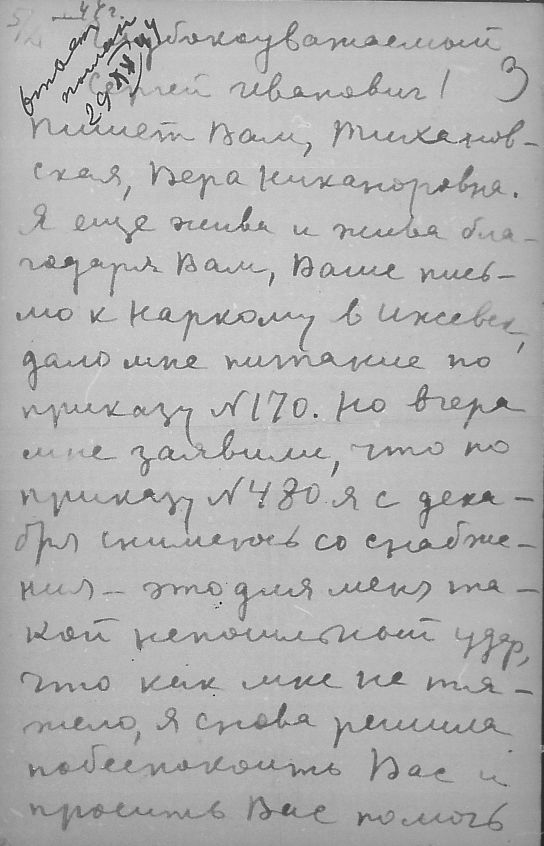 44 г.
ответ
послан
29/XII 44
3
Глубокоуважаемый
Сергей Иванович!
Пишет Вам, Тиханов-
ская, Вера Никаноровна.
Я еще жива и жива бла-
годаря Вам, Ваше пись-
мо к Наркому в Ижевск,
дало мне питание по
приказу №170. Но вчера
мне заявили, что по
приказу №480 я с дека-
бря снимаюсь со снабже-
ния – это для меня та-
кой непосильный удар,
что как мне не тя-
жело, я снова решила
побеспокоить Вас и
просить Вас помочь